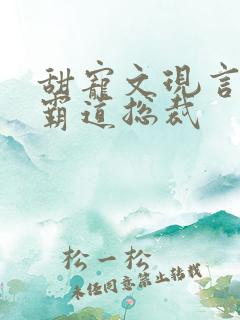 甜寵文現言
霸道总裁
松一松
未经同意禁止转载